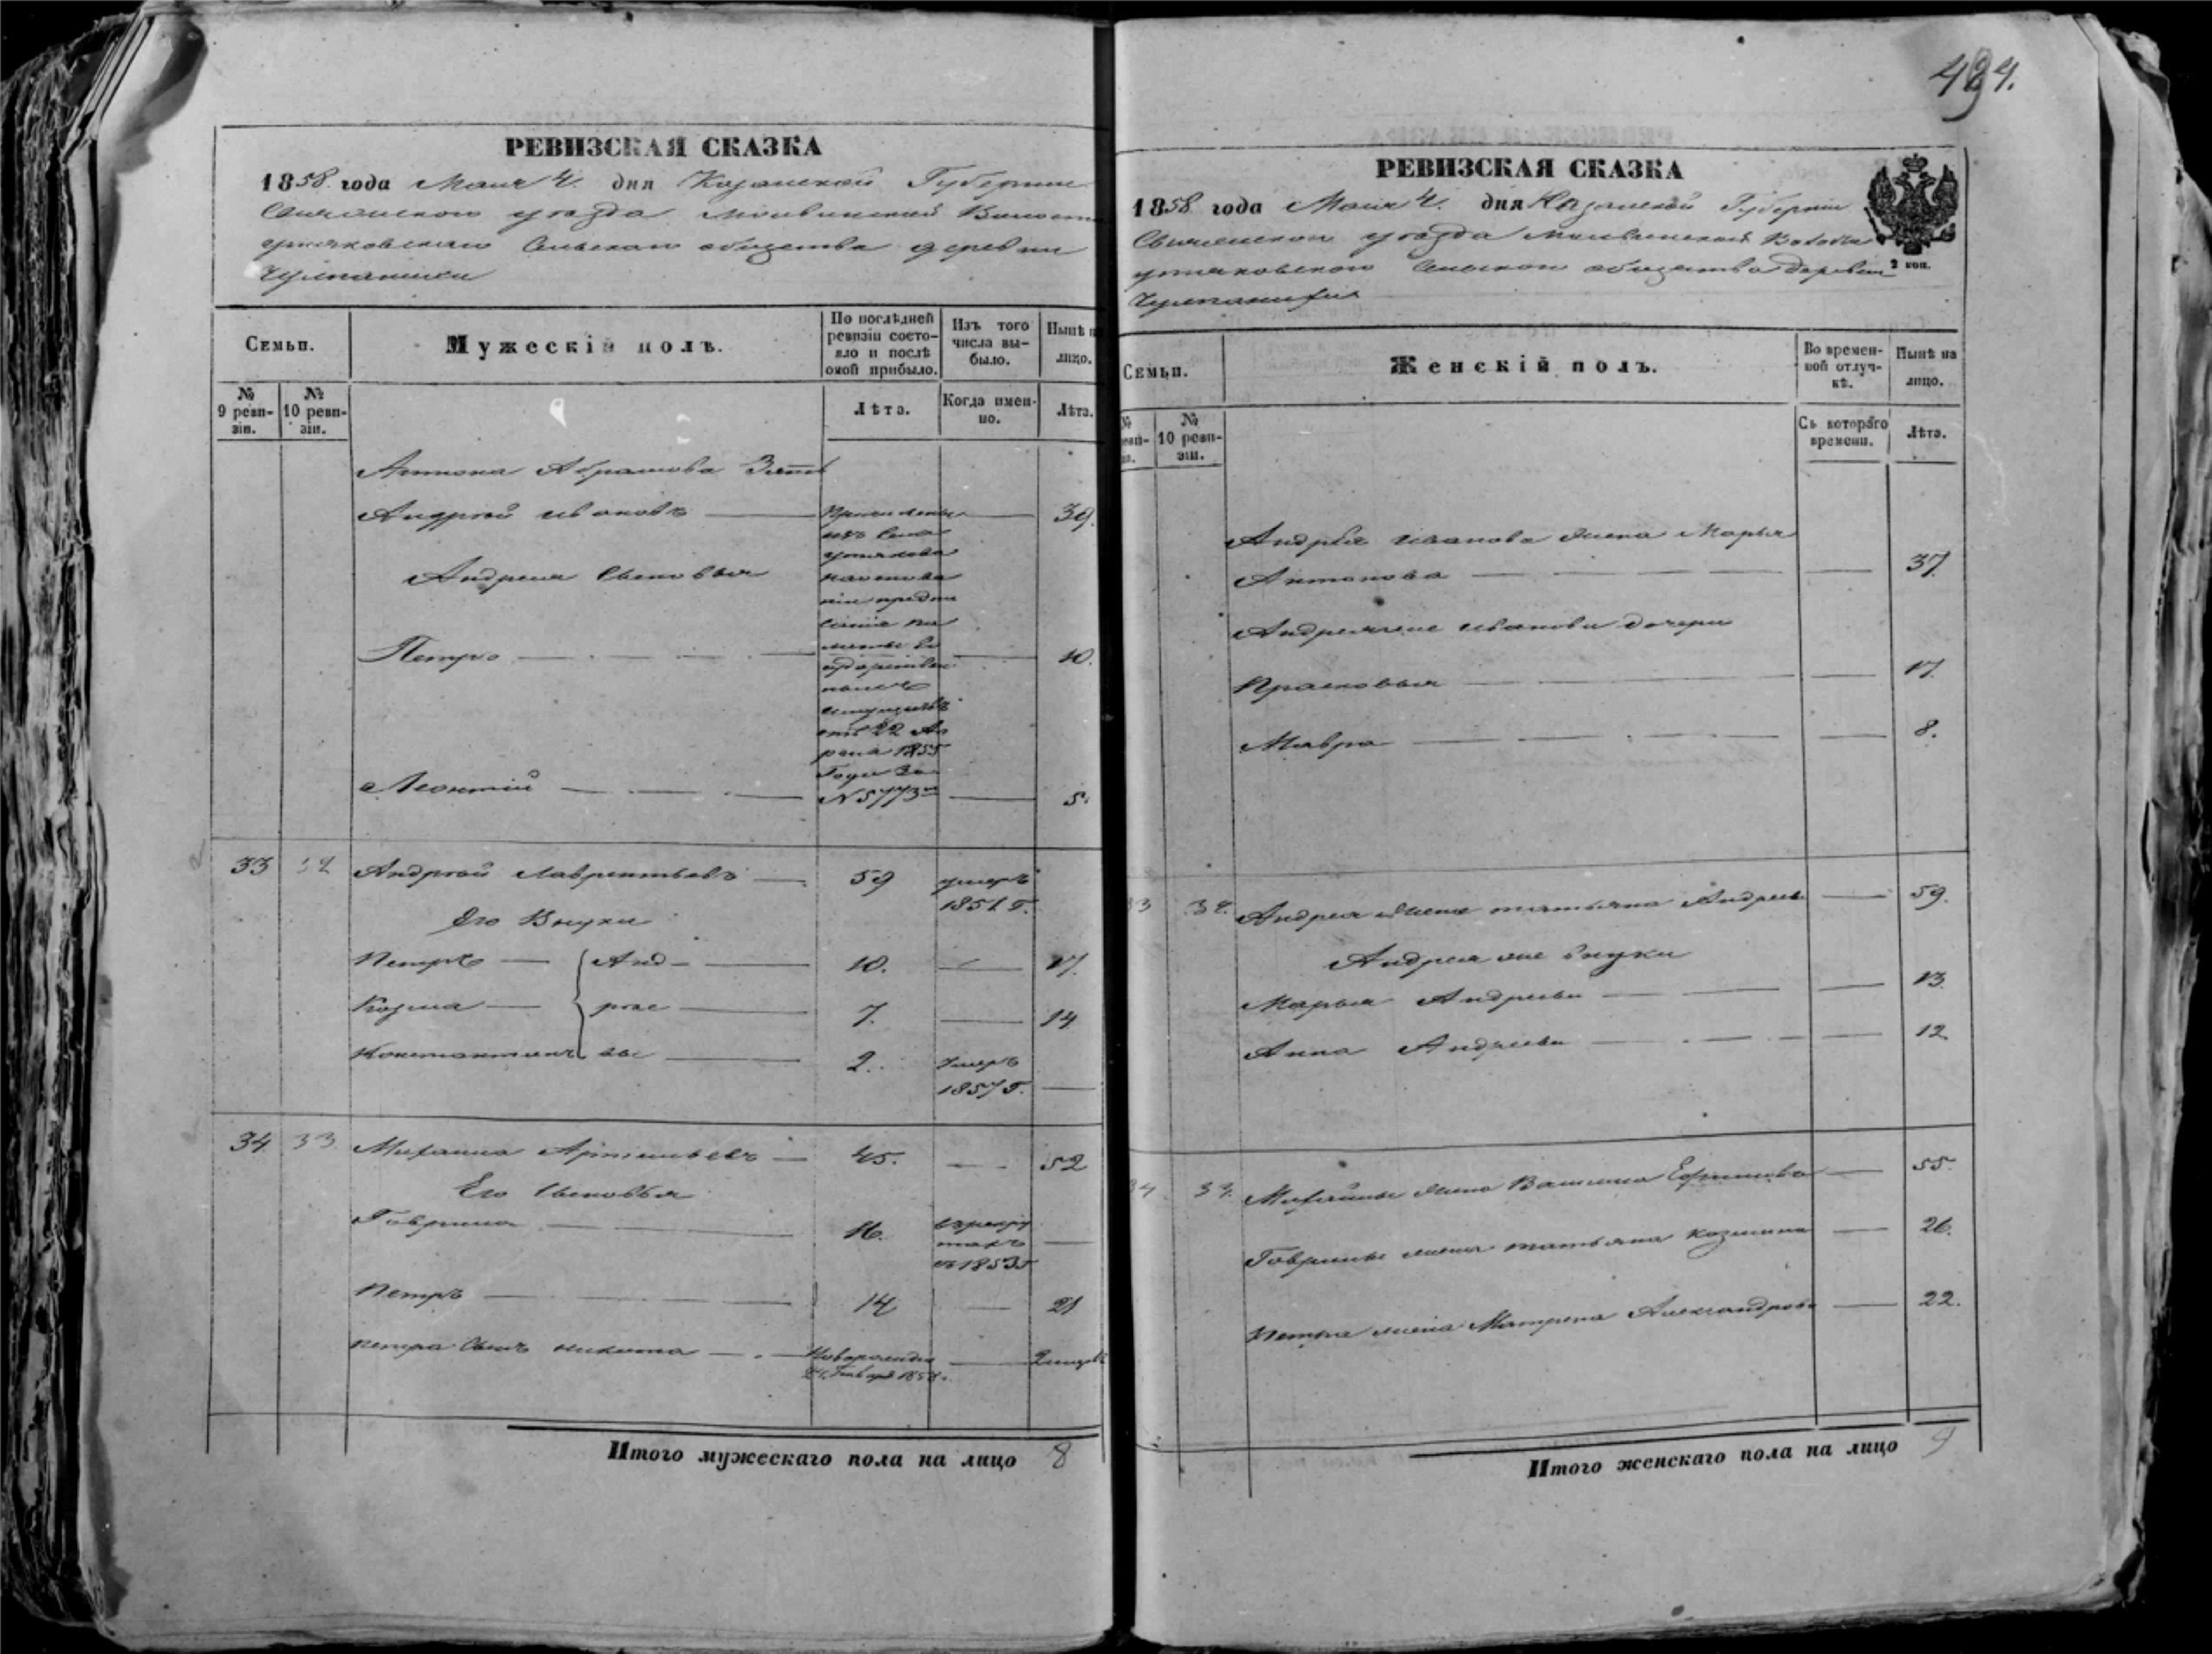 484.
РЕВИЗСКАЯ СКАЗКА
1858 года Маия 4. дня Казанской Губернии
Свияжского уезда Волости
Сельскаго общества деревни
Семьи.
Мужескій полъ.
По послѣдней ревизіи состояло и послѣ оной прибыло.
Изъ того числа выбыло.
Нынѣ на лицо.
№ 9 ревизіи.
№ 10 ревизіи.
Лѣта.
Когда именно.
Лѣта.
Антона Абрамова Зять
Андрей Ивановъ 39.
Причислены
изъ села
Андрея Сыновья
Петръ 10.
от 22 Ап
реля 1855
Года За
Леонтій N 5773м 5.
33 32 Андрей Лаврентьевъ 59 умеръ
1851 Г.
Его Внуки
Петръ Анд- 10. 17.
Козма рѣе 7. 14
Константинъ вы 2. Умеръ
1857 Г.
34 33 Михаила Артемьевъ 45. 52
Его Сыновья
Гаврила 16. въ рекру
тахъ
въ 1853 г
Петръ 14 21
Петра Сынъ Никита Новорожден
Января 1858 г.
Итого мужескаго пола на лицо 8
РЕВИЗСКАЯ СКАЗКА
1858 года Маия 4. дня Казанской Губерніи
Свияжского уезда Волости
Сельскаго общества деревни
2 коп.
Семьи.
Женскій полъ.
Во временной отлучкѣ.
Нынѣ на лицо.
№ 10 ревизіи.
Съ котораго времени.
Лѣта.
Андрея Иванова жена Марья
Антонова 37.
Андреяже Иванова дочери
Прасковья 17.
Мавра 8.
33 32. Андрея жена татьяна Андреев 59.
Андрея же внуки
Марья Андреева 13.
Анна Андреева 12
34 33. Михайлы жена Василиса Ефимова 55.
Гаврилы жена татьяна Козмина 26.
Петра жена Матрена Александрова 22.
Итого женскаго пола на лицо 9